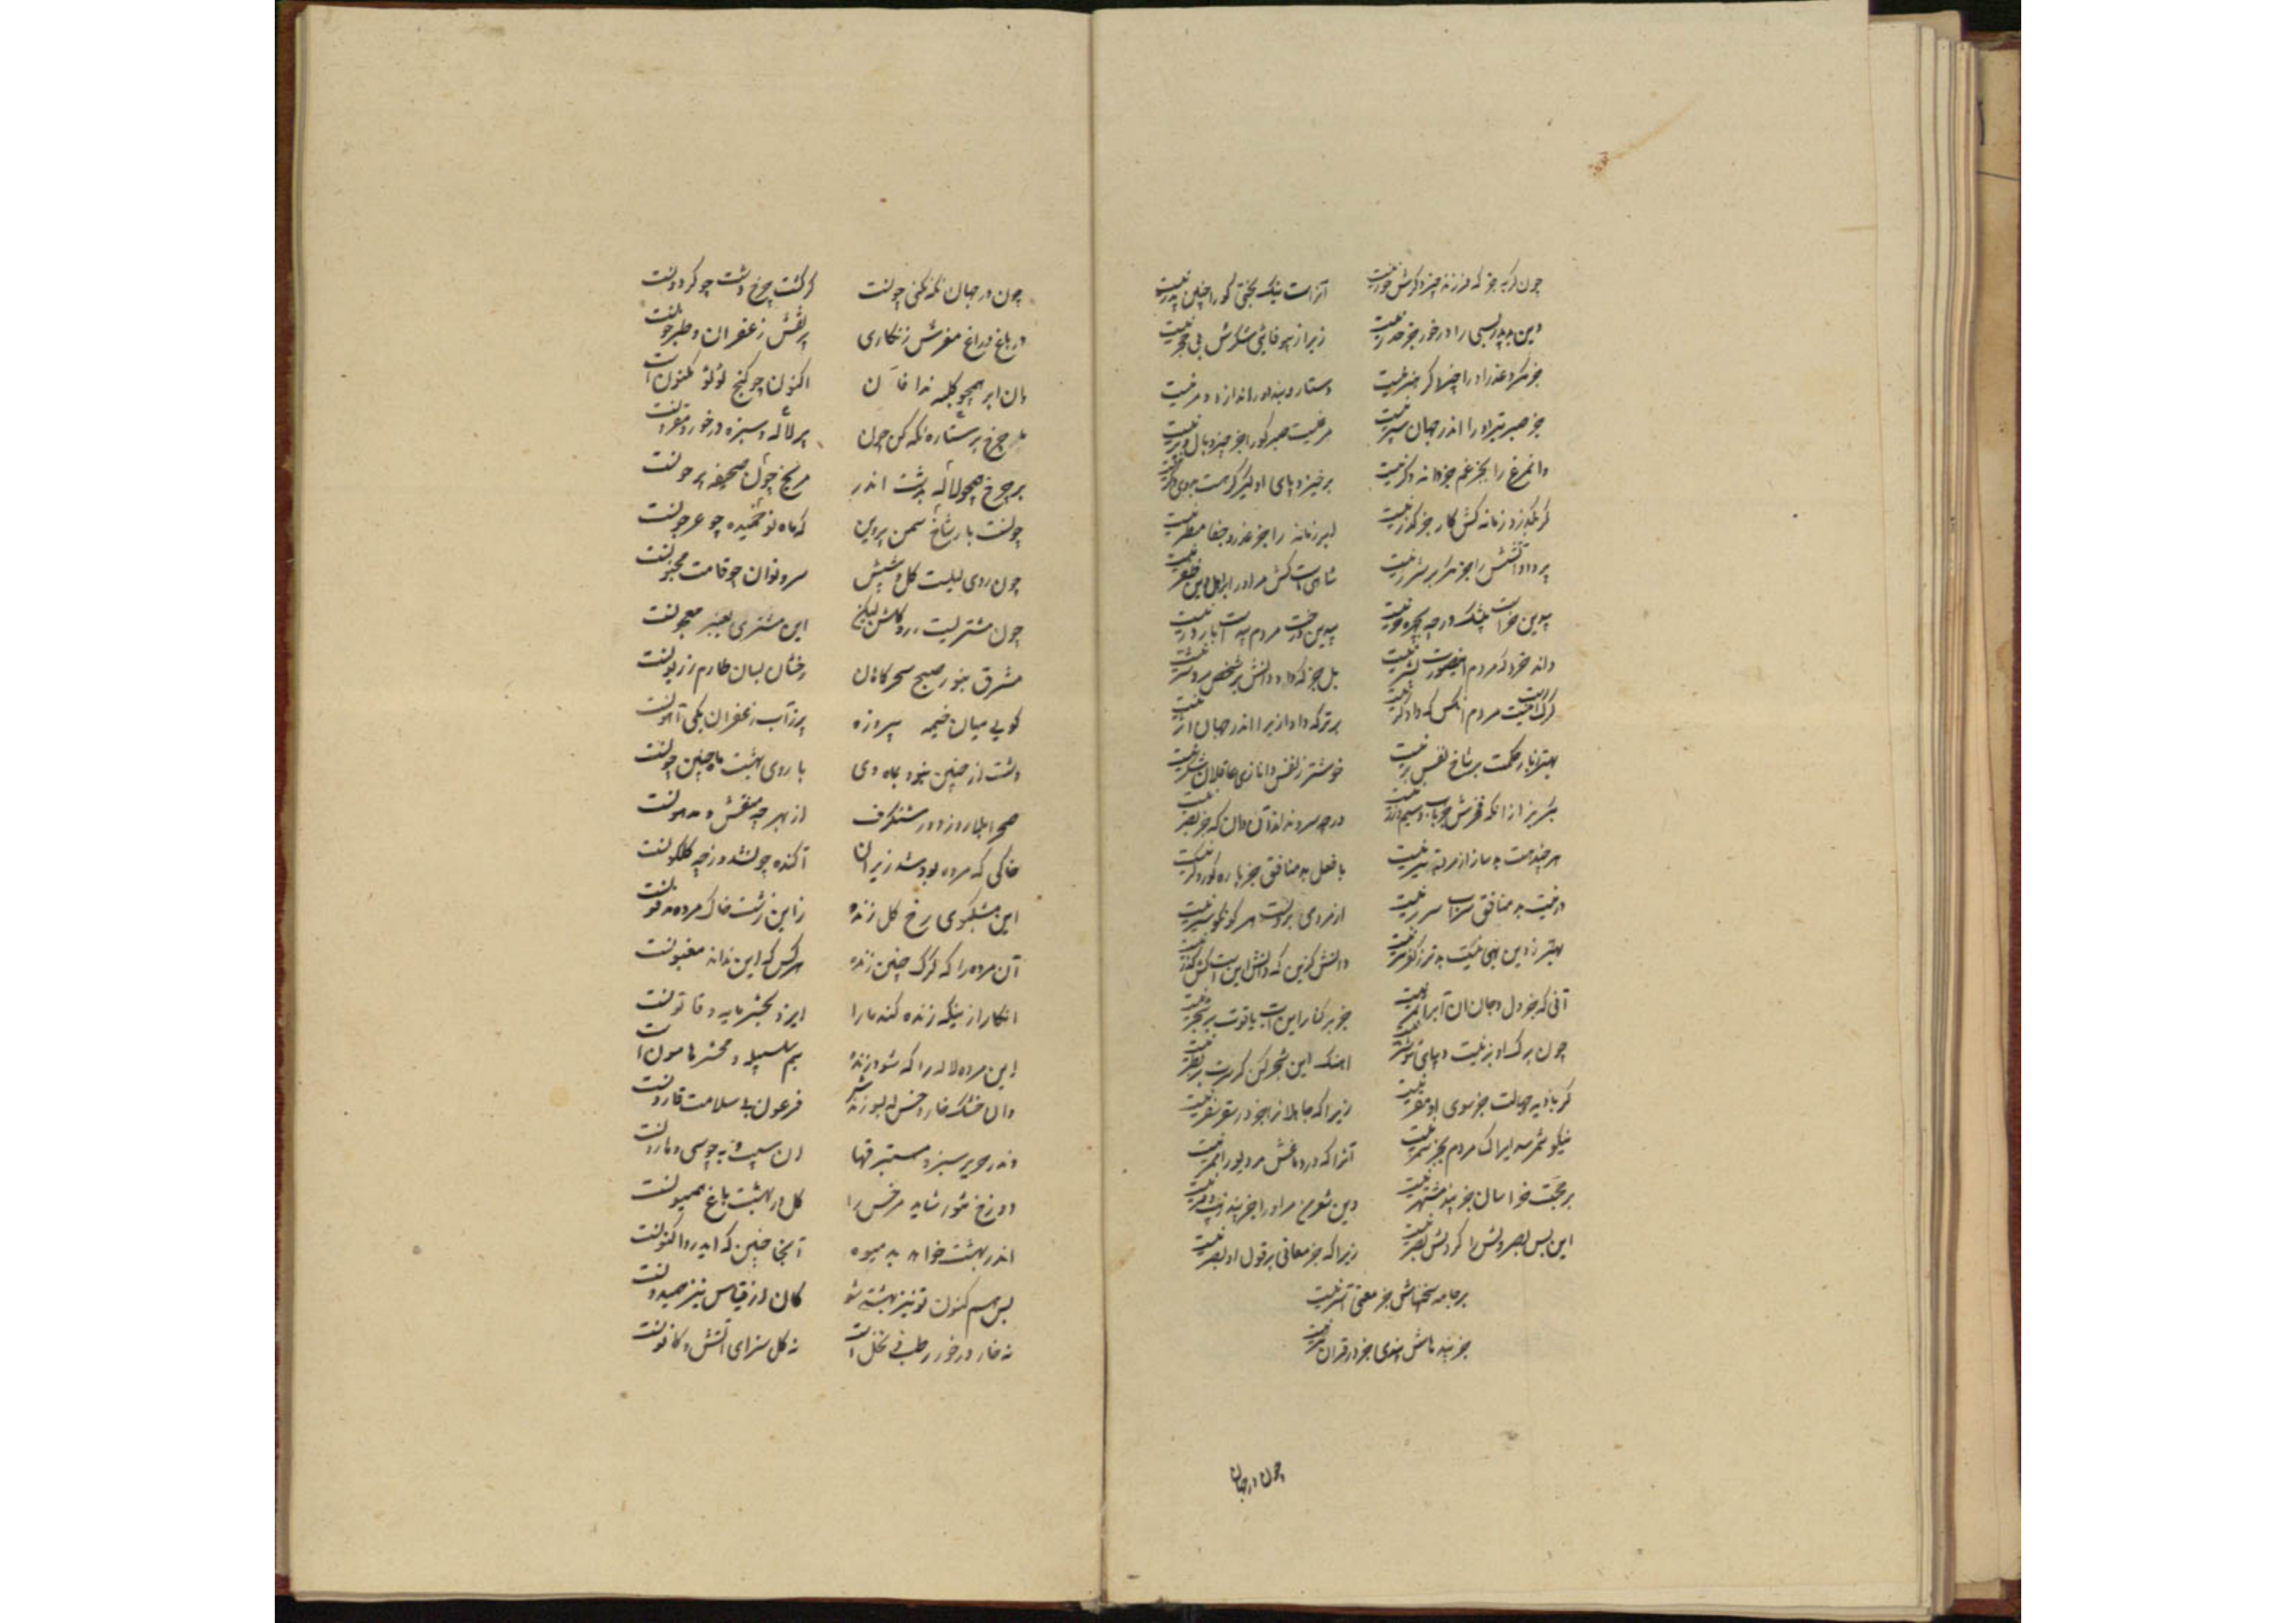 چون گربه جو که فرزند چیز دگرش خور نیست آنراست نیک بختی کو را چنین پدر نیست
وین بد پدر بسی را درخور بجز حذر نیست زیرا ز بیوفائی شکرش بی حجر نیست
جز مکر و غدر او را چیزی دگر هنر نیست دستار و بند او را اندازه و مر نیست
جز صبر تیر او را اندر جهان سپر نیست مرغیست صبر کورا جز خیر و بال و پر نیست
وانمرغ را بجز غم جز دانه دگر نیست برخیز و پای او گیر گرت سوی دگر نیست
گر بگذرد زمانه کش کار جز گذر نیست ابر زمانه را جز غدر و جفا مطر نیست
پرداد آتشش را جز شر بر شرر نیست شاهیست کش مراد را بر اهل دین ظفر نیست
بیدین خر است بیشک ورچه بچهره خر نیست بیدین درخت مردم بید است بارور نیست
داند خرد که مردم اینصورت بشر نیست بل جز که داد و دانش بر شخص مرد سر نیست
گرگ است نیست مردم آنکس که دادگر نیست برتر ز داد ازیرا اندر جهان اثر نیست
بهتر ز بار حکمت بر شاخ نفس بر نیست خوشتر ز نفس دانا زی عاقلان شکر نیست
بگریز از آنکه فخرش جز باب و سیم و زر نیست ورچه سرود نداند آن دان که جز بقر نیست
هرچند مت بد ساز از مردم بتیر نیست با فعل بد منافق جز باره کور و کر نیست
در نیست بد منافق سزای سر نیست از مردمی برونست هر کو نکو سیر نیست
بهتر ز دین بهی نیست بدتر ز کفر نیست دانش گزین که دانش این است کش گذر نیست
آنی که جز دل و جان آن آبرا ثمر نیست جز بر کنار این آب یاقوت بر شجر نیست
چون برگ او بزینت دیبای شوشتر نیست آهنگ این شجر کن گرت سر بطر نیست
گر بادیه جهالت جز سوی او مفر نیست زیرا که جاهلان را جز در سقر مقر نیست
نیکو ثمر مر ایراک مردم بجز ثمر نیست آنرا که در دماغش مر دیو را ممر نیست
بر حجت خراسان جز پند مشتهر نیست وین شعر من مر او را جز پند زیب و فر نیست
این بس بصر دلش را گر دلش بصر نیست زیرا که جز معانی بر قول او بصر نیست
بر جامه سخنهاش جز معنی آستر نیست
جز پند ماش پندی جز در قران مگر نیست
چون در جهان
چون در جهان نگه نکنی چونست کز گشت چرخ دشت چو گردونست
در باغ و راغ مفرش زنگاری پر نقش زعفران و طبرخونست
وان ابر همچو کلبه ندافان اکنون چو گنج لؤلؤ مکنون است
بل چرخ پر ستاره نگه کن چون پر لاله و سبزه درخور و مقرونست
بر چرخ همچو لاله بدشت اندر مریخ چون صحیفه پر خونست
چونست باز شاخ سمن پروین گر ماه نو خمیده چو عرجونست
چون روی لیلیست گل و پیشش سرو نوان چو قامت مجنونست
چون مشتریست زرد گلش لیکن این مشتری بعنبر معجونست
مشرق بنور صبح سحرگاهان رخشان بسان طارم زریونست
گویی میان خیمه پیروزه پر ز آب زعفران یکی آهونست
دشت از چنین نبود بماه دی با روی بهشت ما چنین چونست
صحرا بلاژورد و زر و شنگرف از بهر چه منقش و مدهونست
خاکی که مرده بود شد زیران آکنده چون شد و زچه گلگونست
این مشکبوی رخ گل زنده زاین زشت خاک مرده مدفونست
آن مرده را که کرک چنین زنده هر کس که این نداند مغبونست
انکار ازینکه زنده کند ما را ایزد بحشر مایه و قانونست
این مرده لاله را که شود زنده بیم سلسبیل و محشر هامون است
وان خشک خار و خس که بسوزندش فرعون بی سلامت قارونست
وندر حریر سبز و ستبرقها آن سیب و به چو موسی و هارونست
دوزخ تنور شاید مر خس را گل در بهشت باغ همیونست
اندر بهشت خواهد بد میوه آنجا چنین که ایدر و اکنونست
بس هم کنون تو نیز بهشتی شو کان از قیاس نیز همیدونست
نه خار درخور رطب و نخل است نه گل سزای آتش و کانونست